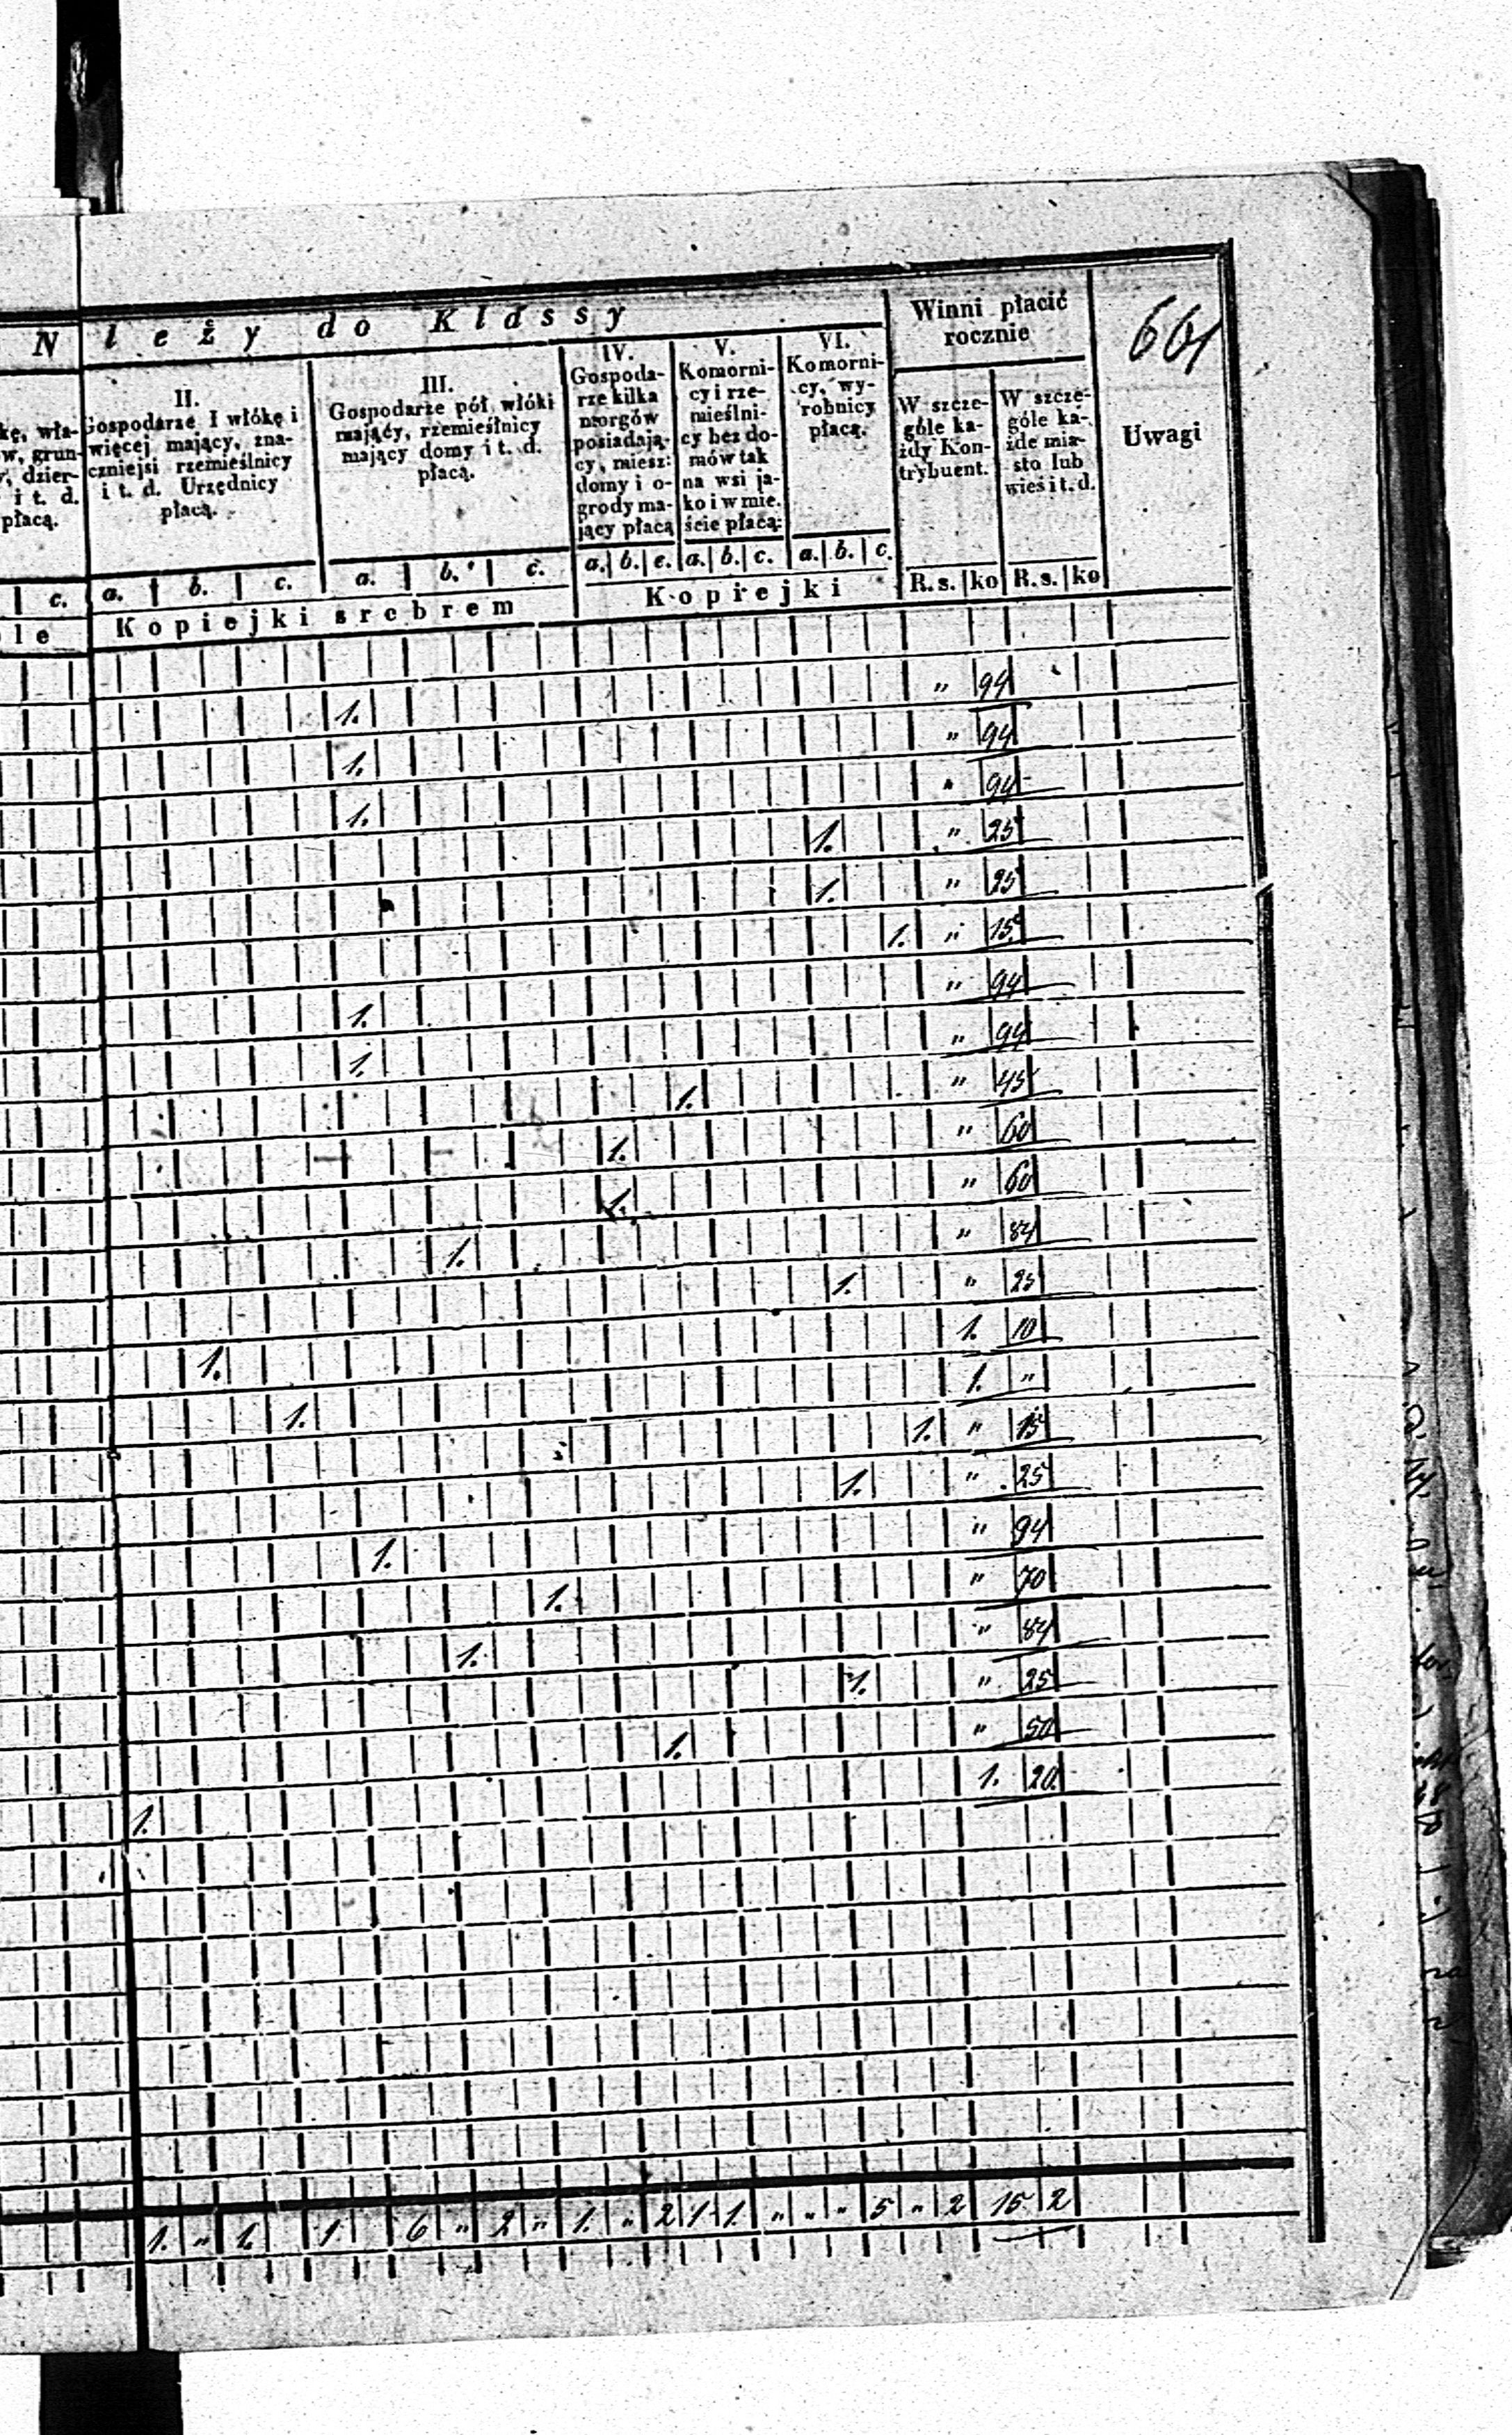 N leży do Klassy
Winni płacić rocznie
664
kę, wła-
w, grun-
, dzier-
i t. d.
płacą.
II.
Gospodarze I włókę i
więcej mający, zna-
czniejsi rzemieślnicy
i t. d. Urzędnicy
płacą.
III.
Gospodarze pół włóki
mający, rzemieślnicy
mający domy i t. d.
płacą.
IV.
Gospoda-
rze kilka
morgów
posiadają-
cy, miesz:
domy i o-
grody ma-
jący płacą
V.
Komorni-
cy i rze-
mieślni-
cy bez do-
mów tak
na wsi ja-
ko i w mie.
ście płacą:
VI.
Komorni-
cy, wy-
robnicy
płacą.
W szcze-
góle ka-
żdy Kon-
trybuent.
W szcze-
góle ka-
żde mia-
sto lub
wieś i t. d.
Uwagi
c. a. b. c. a. b. c. a. b. c. a. b. c. a. b. c. R. s. ko R. s. ko
le Kopiejki srebrem Kopiejki
1. " 94
1. " 94
1. " 94
1. " 25
1. " 25
1. " 15
1. " 94
1. " 94
1. " 45
1. " 60
1. " 60
1. " 84
1. " 25
1. 1. 10
1. 1. "
1. " 15
1. " 25
1. " 94
1. " 70
1. " 84
1. " 25
1. " 50
1. 1. 20
1. " 1. 1 6 " 2 " 1. " 2 1 1. " " " 5 " 2 15 2